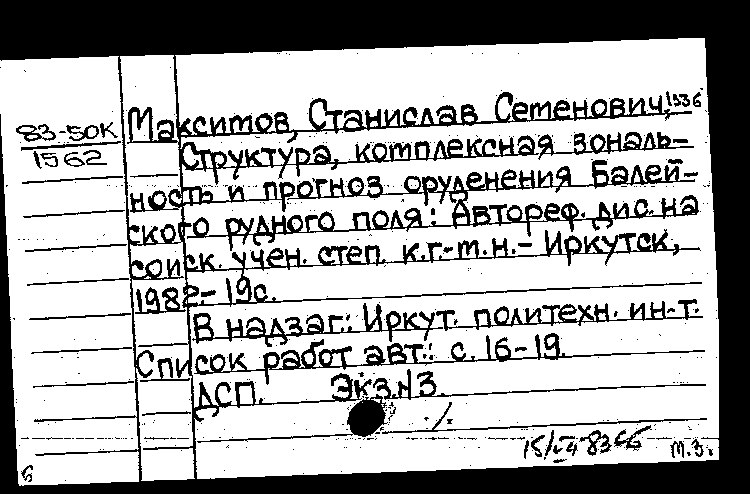 83-50К
1562
Максимов, Станислав Семенович, 1936
Структура, комплексная зональ-
ность и прогноз оруденения Балей-
ского рудного поля: Автореф. дис. на
соиск. учен. степ. к.г.-м.н. - Иркутск,
1982 - 19с.
В надзаг.: Иркут. политехн. ин-т.
Список работ авт.: с. 16-19.
ДСП. Экз.N3.
М.З.